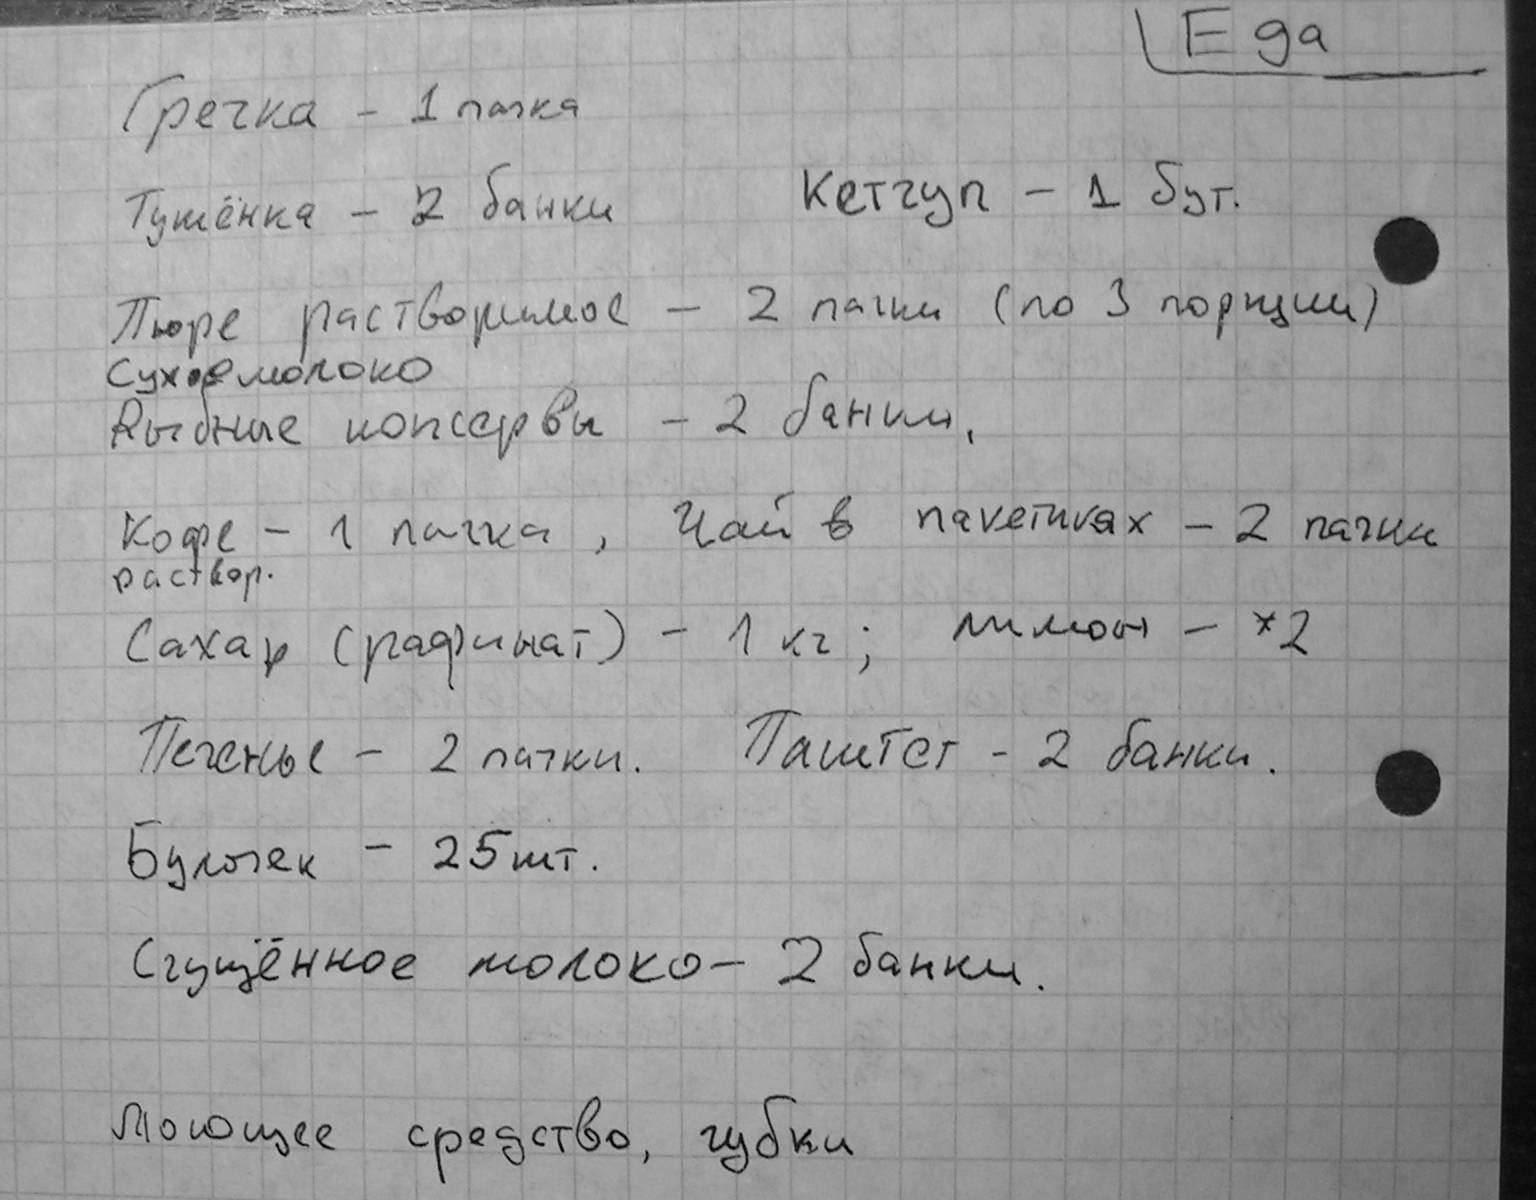 Еда
Гречка – 1 пачка
Тушёнка – 2 банки Кетчуп – 1 бут.
Пюре растворимое – 2 пачки (по 3 порции)
Сухое молоко
Рыбные консервы – 2 банки.
Кофе – 1 пачка, Чай в пакетиках – 2 пачки
раствор.
Сахар (рафинат) – 1 кг; лимон – *2
Печенье – 2 пачки. Паштет – 2 банки.
Булочек – 25 шт.
Сгущённое молоко – 2 банки.
Моющее средство, губки